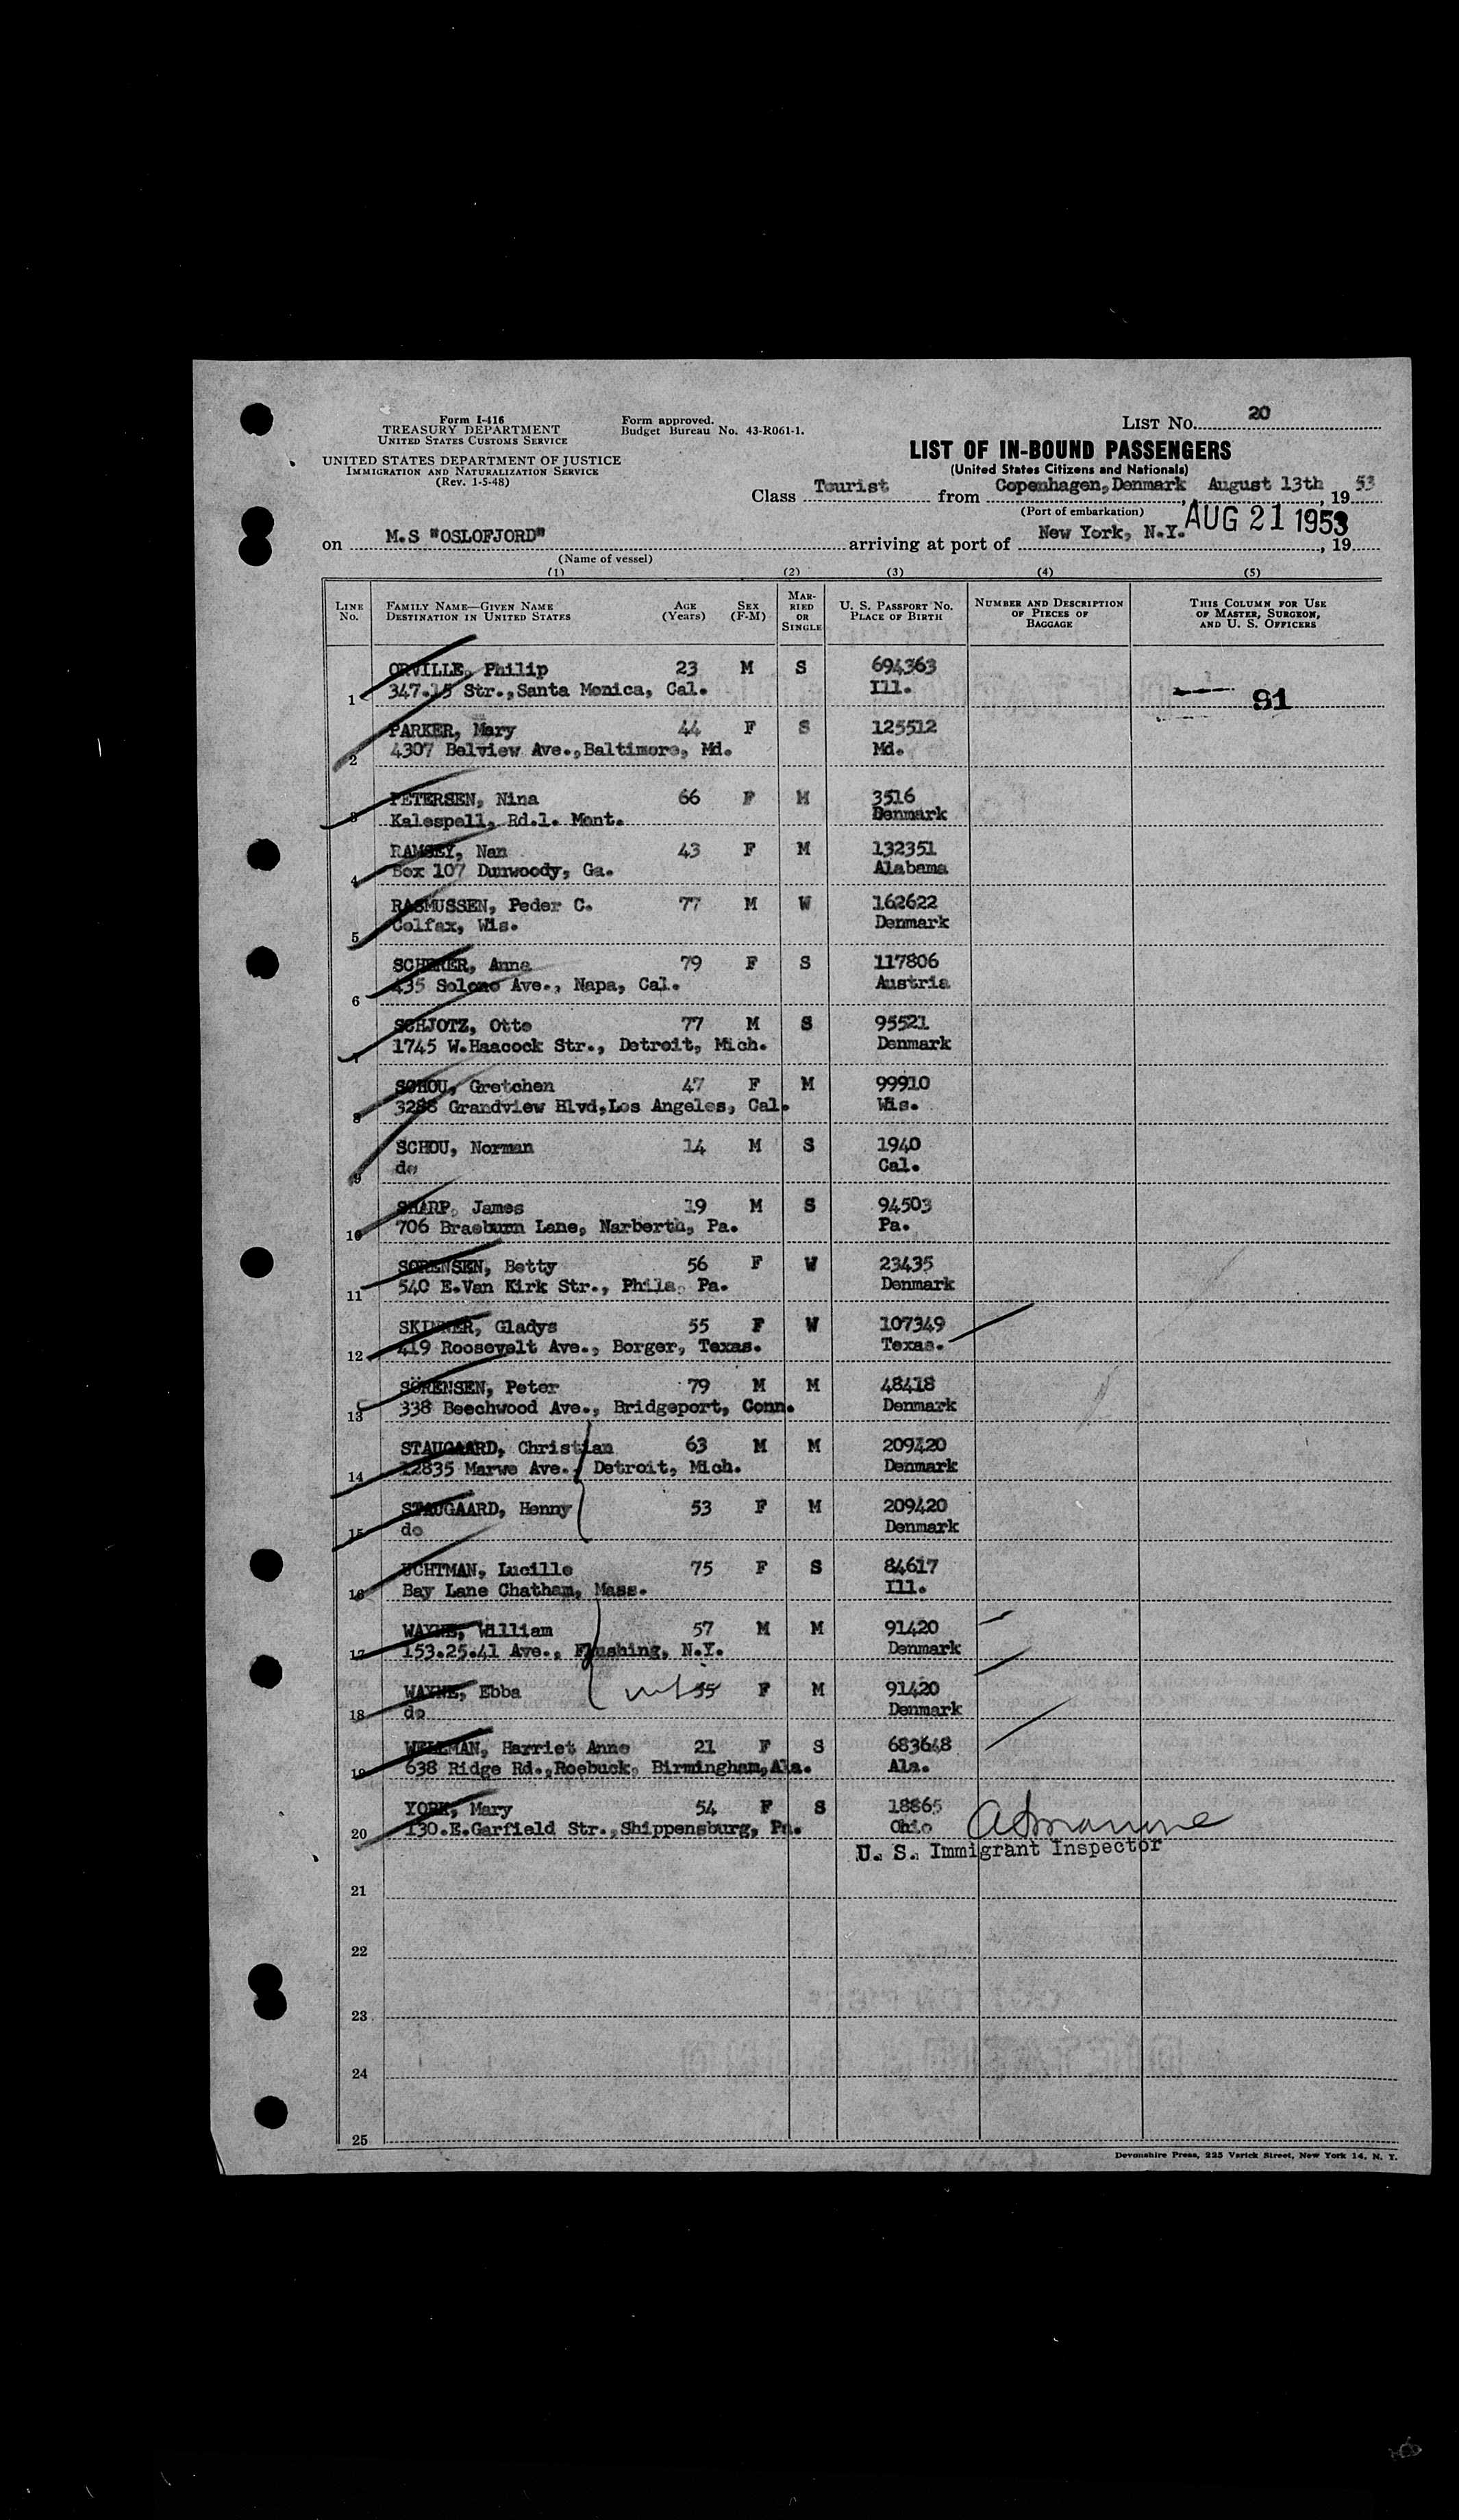 Form I-416
TREASURY DEPARTMENT
UNITED STATES CUSTOMS SERVICE
UNITED STATES DEPARTMENT OF JUSTICE
IMMIGRATION AND NATURALIZATION SERVICE
(Rev. 1-5-48)
Form approved.
Budget Bureau No. 43-R061-1.
LIST No. 20
LIST OF IN-BOUND PASSENGERS
(United States Citizens and Nationals)
Class Tourist from Copenhagen, Denmark, August 13th, 1953
(Port of embarkation)
on M.S "OSLOFJORD" arriving at port of New York, N.Y. AUG 21 1953, 19
(Name of vessel)
(1) (2) (3) (4) (5)
LINE No. FAMILY NAME—GIVEN NAME DESTINATION IN UNITED STATES AGE (Years) SEX (F-M) MARRIED OR SINGLE U. S. PASSPORT NO. PLACE OF BIRTH NUMBER AND DESCRIPTION OF PIECES OF BAGGAGE THIS COLUMN FOR USE OF MASTER, SURGEON, AND U. S. OFFICERS
ORVILLE, Philip 23 M S 694363
1 347.15 Str.,Santa Monica, Cal. Ill. 91
PARKER, Mary 44 F S 125512
2 4307 Belview Ave.,Baltimore, Md. Md.
PETERSEN, Nina 66 F M 3516
3 Kalespell, Rd.1. Mont. Denmark
RAMSEY, Nan 43 F M 132351
4 Box 107 Dunwoody, Ga. Alabama
RASMUSSEN, Peder C. 77 M W 162622
5 Colfax, Wis. Denmark
SCHERER, Anna 79 F S 117806
6 435 Solono Ave., Napa, Cal. Austria
SCHJOTZ, Otto 77 M S 95521
7 1745 W.Haacock Str., Detroit, Mich. Denmark
SCHOU, Gretchen 47 F M 99910
8 3288 Grandview Blvd,Los Angeles, Cal. Wis.
SCHOU, Norman 14 M S 1940
9 do Cal.
SHARP, James 19 M S 94503
10 706 Braeburn Lane, Narberth, Pa. Pa.
SORENSEN, Betty 56 F W 23435
11 540 E.Van Kirk Str., Phila. Pa. Denmark
SKINNER, Gladys 55 F W 107349
12 419 Roosevelt Ave., Borger, Texas. Texas.
SÖRENSEN, Peter 79 M M 48418
13 338 Beechwood Ave., Bridgeport, Conn. Denmark
STAUGAARD, Christian 63 M M 209420
14 12835 Marwe Ave., Detroit, Mich. Denmark
STAUGAARD, Henny 53 F M 209420
15 do Denmark
UCHTMAN, Lucille 75 F S 84617
16 Bay Lane Chatham, Mass. Ill.
WAYNE, William 57 M M 91420
17 153.25.41 Ave., Flushing, N.Y. Denmark
WAYNE, Ebba 55 F M 91420
18 do Denmark
WELLMAN, Harriet Anne 21 F S 683648
19 638 Ridge Rd.,Roebuck, Birmingham,Ala. Ala.
YORK, Mary 54 F S 18865
20 130.E.Garfield Str.,Shippensburg, Pa. Ohio
U. S. Immigrant Inspector
21
22
23
24
25
Devonshire Press, 225 Varick Street, New York 14, N. Y.